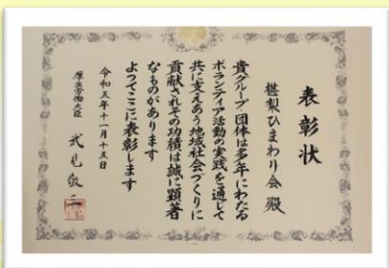 表彰状
椹梨ひまわり会 殿
貴グループ団体は多年にわたる
ボランティア活動の実践を通して
共に支えあう地域社会づくりに
貢献されその功績は誠に顕著
なものがあります
よってここに表彰します
令和五年十一月十五日
厚生労働大臣 武見敬三